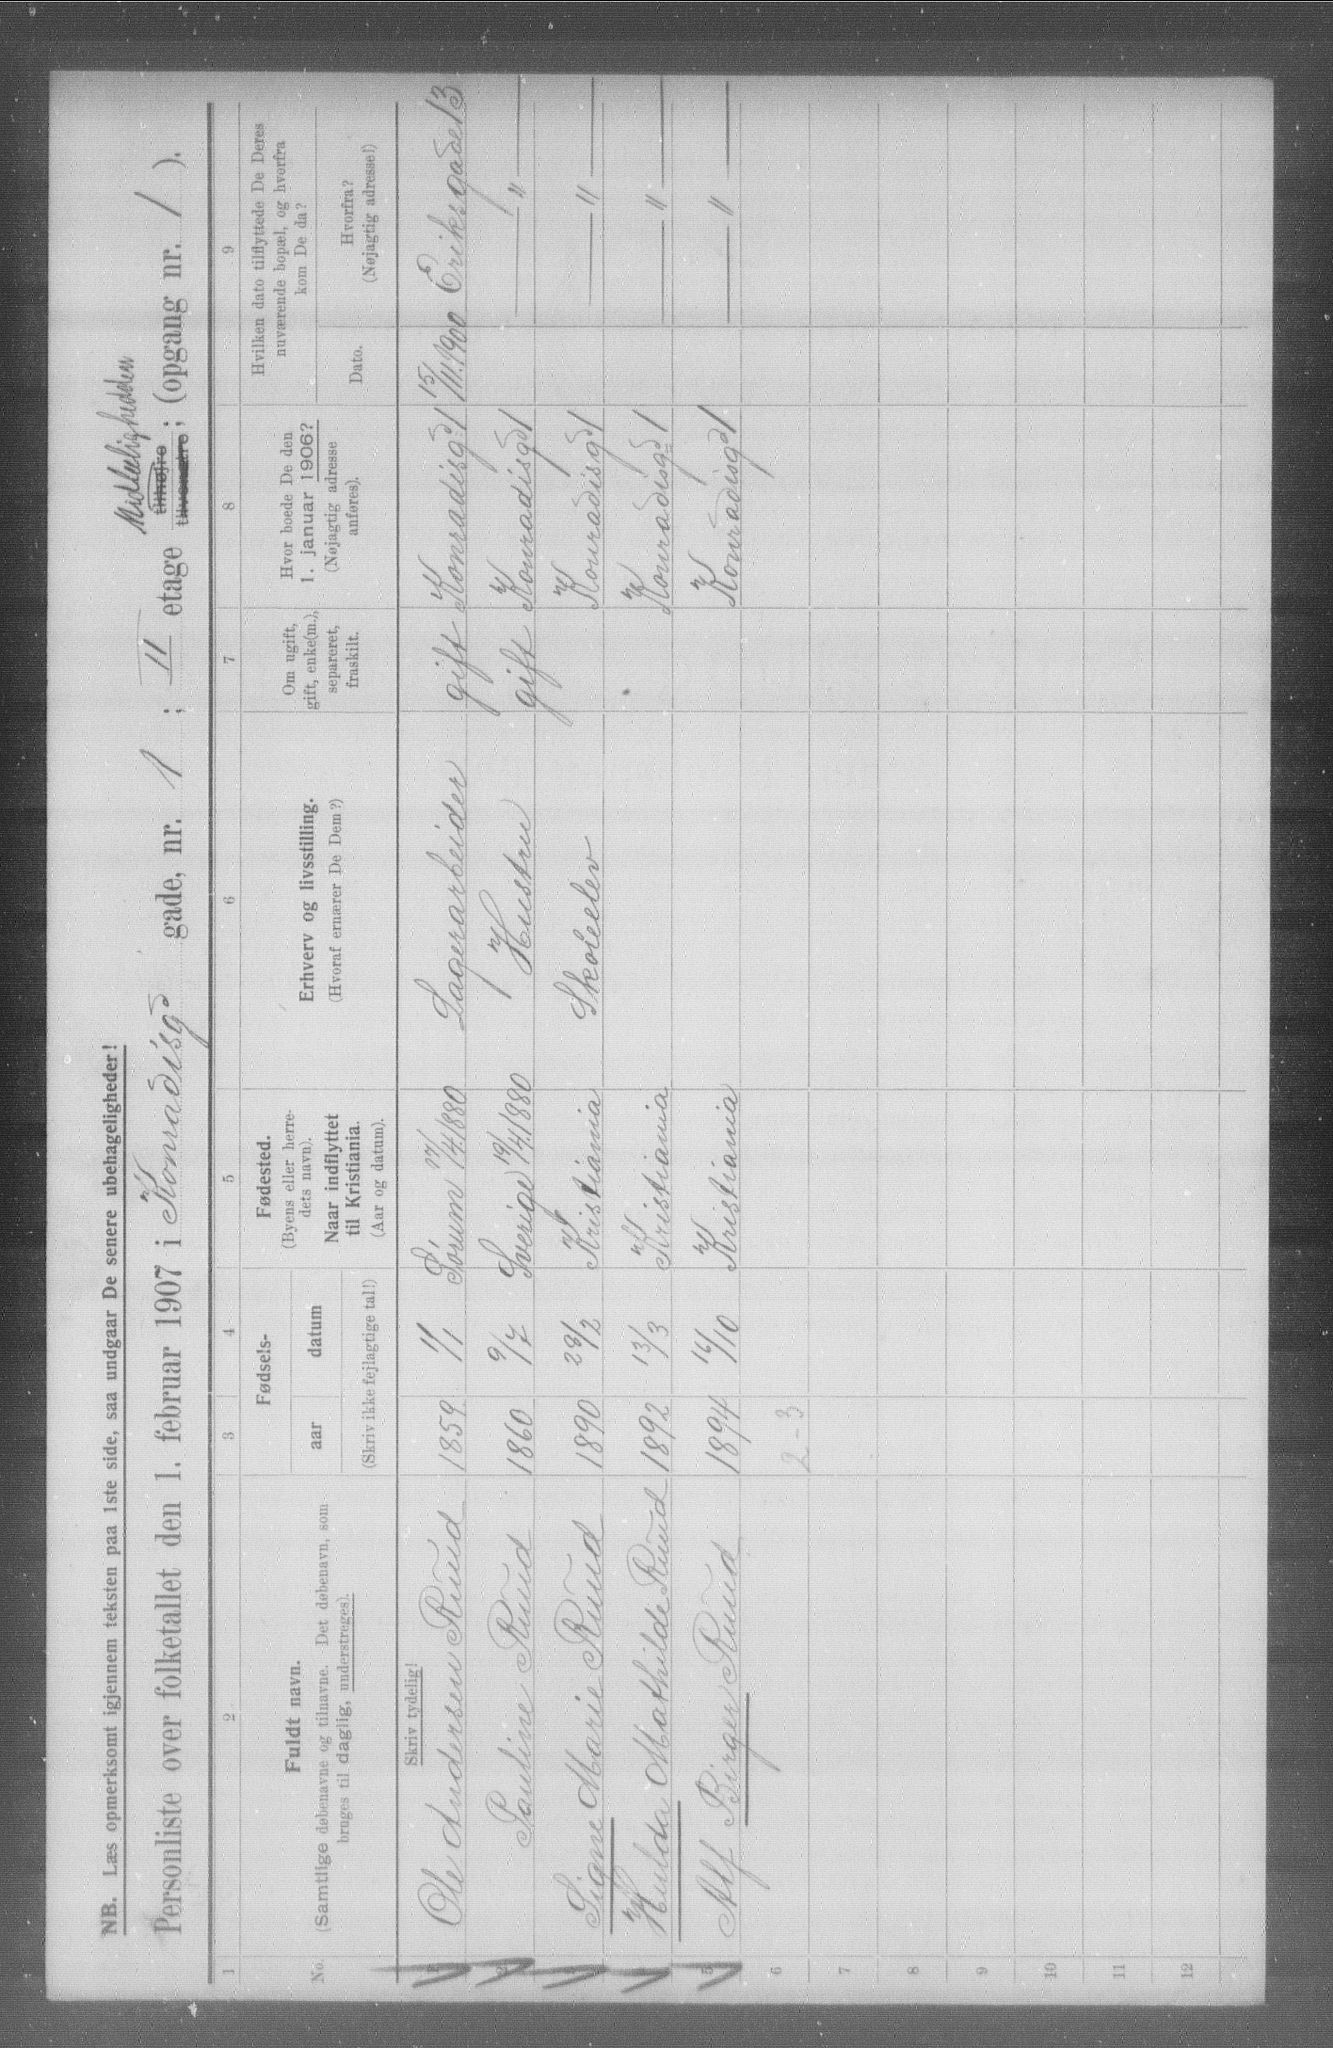 NB. Læs opmerksomt igjennem teksten paa 1ste side, saa undgaar De senere ubehageligheder!
Middelligheden
Personliste over folketallet den 1. februar 1907 i Konradisgd gade, nr. 1 ; II etage tilhøjre tilvenstre ; (opgang nr. 1 ).
1 2 3 4 5 6 7 8 9
No.
Fuldt navn.
(Samtlige døbenavne og tilnavne. Det døbenavn, som
bruges til daglig, understreges).
Fødsels-
aar datum
(Skriv ikke fejlagtige tal!)
Fødested.
(Byens eller herre-
dets navn).
Naar indflyttet
til Kristiania.
(Aar og datum).
Erhverv og livsstilling.
(Hvoraf ernærer De Dem?)
Om ugift,
gift, enke(m.),
separeret,
fraskilt.
Hvor boede De den
1. januar 1906?
(Nøjagtig adresse
anføres).
Hvilken dato tilflyttede De Deres
nuværende bopæl, og hvorfra
kom De da?
Dato.
Hvorfra?
(Nøjagtig adresse!)
Skriv tydelig!
1 Ole Andersen Ruud 1859 1/1 Sørum 17/4 1880 Lagerarbeider gift Konradisgd 1 15/11.1900 Eriksgade 13
2 Pauline Ruud 1860 9/7 Sverige 19/4 1880 Hustru gift Konradisgd 1 — " —
3 Signe Marie Ruud 1890 28/2 Kristiania Skoleelev Konradisgd 1 — " —
4 Hulda Mathilde Ruud 1892 13/3 Kristiania Konradisgd 1 — " —
5 Alf Birger Ruud 1894 16/10 Kristiania Konradisgd 1 — " —
6 2-3
7
8
9
10
11
12